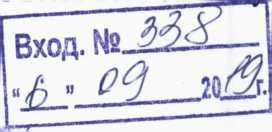 Вход. № 338
"6" 09 2019г.